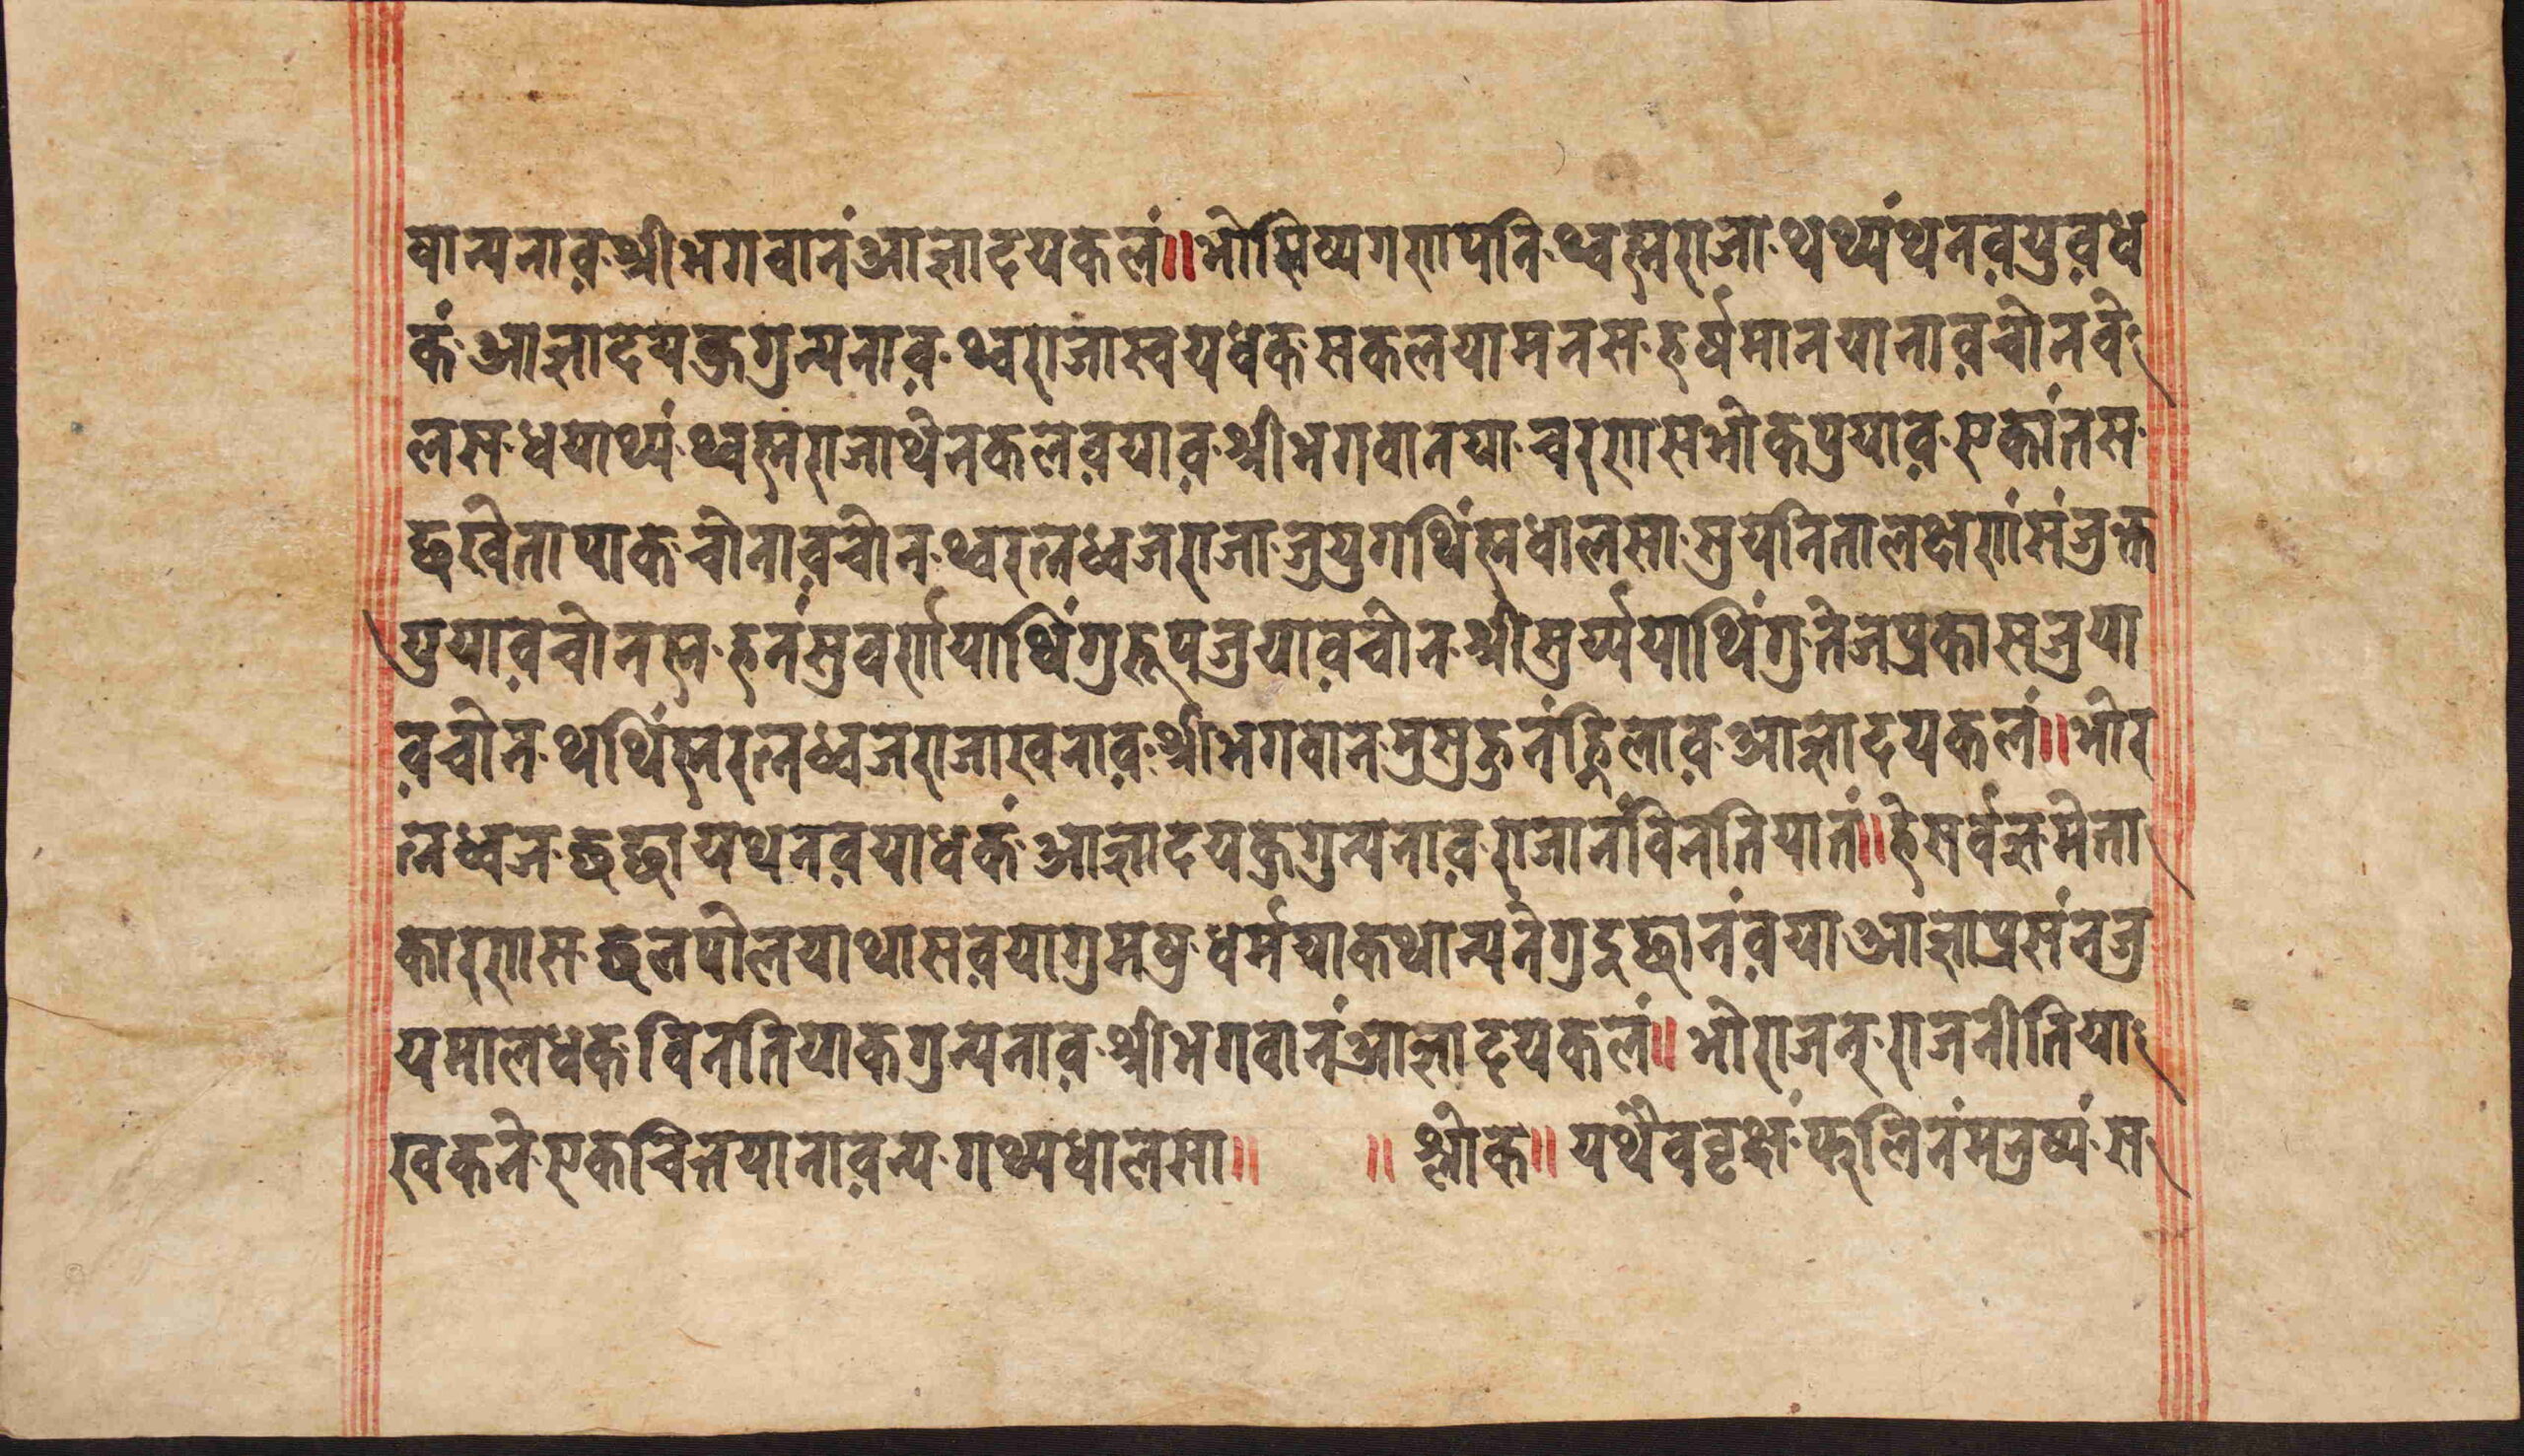 षान्यनाव़·श्रीभगवानंआज्ञादयकलं॥भोसिष्यगणपनि·थ्वह्मराजा·थथ्यंथनव़युव़ध
कं·आज्ञादयकुगुन्यनाव़·थ्वराजास्वयधक·सकलयामनस·हर्षमानयानाव़चोनवे
लस·धयाथ्यं·थ्वह्मराजाथेनकलव़याव़·श्रीभगवानया·चरणसभोकपुयाव़·एकांतस·
छखेतापाक·चोनाव़चोन·थ्वरत्नध्वजराजा·जुयुगथिंह्मधालसा·सुयनितालक्षणंसंजुक्त
जुयाव़चोनह्म·हनंसुवर्णयाथिंगुरूपजुयाव़चोन·श्रीसुर्य्ययाथिंगुतेजप्रकासजुया
व़चोन·थथिंह्मरत्नध्वजराजाखनाव़·श्रीभगवान·मुसुहुनंह्रिलाव़·आज्ञादयकलं॥भोर
त्नध्वज·छुछायथनव़याधकं·आज्ञादयकुगुन्यनाव़·राजानंविनतियातं॥हेसर्वज्ञ·मेता
कारणस·छलपोलयाथासव़यागुमखु·धर्मयाकथान्यनेगुइछानंव़या·आज्ञाप्रसंनजु
यमालधक·विनतियाकगुन्यनाव़·श्रीभगवानंआज्ञादयकलं॥भोराजन्·राजनीतिया
खकने·एकचित्तयानाव़न्य·गथ्यधालसा॥ ॥श्लोक॥यथैववृक्षं·फलिनंमनुष्यं·स